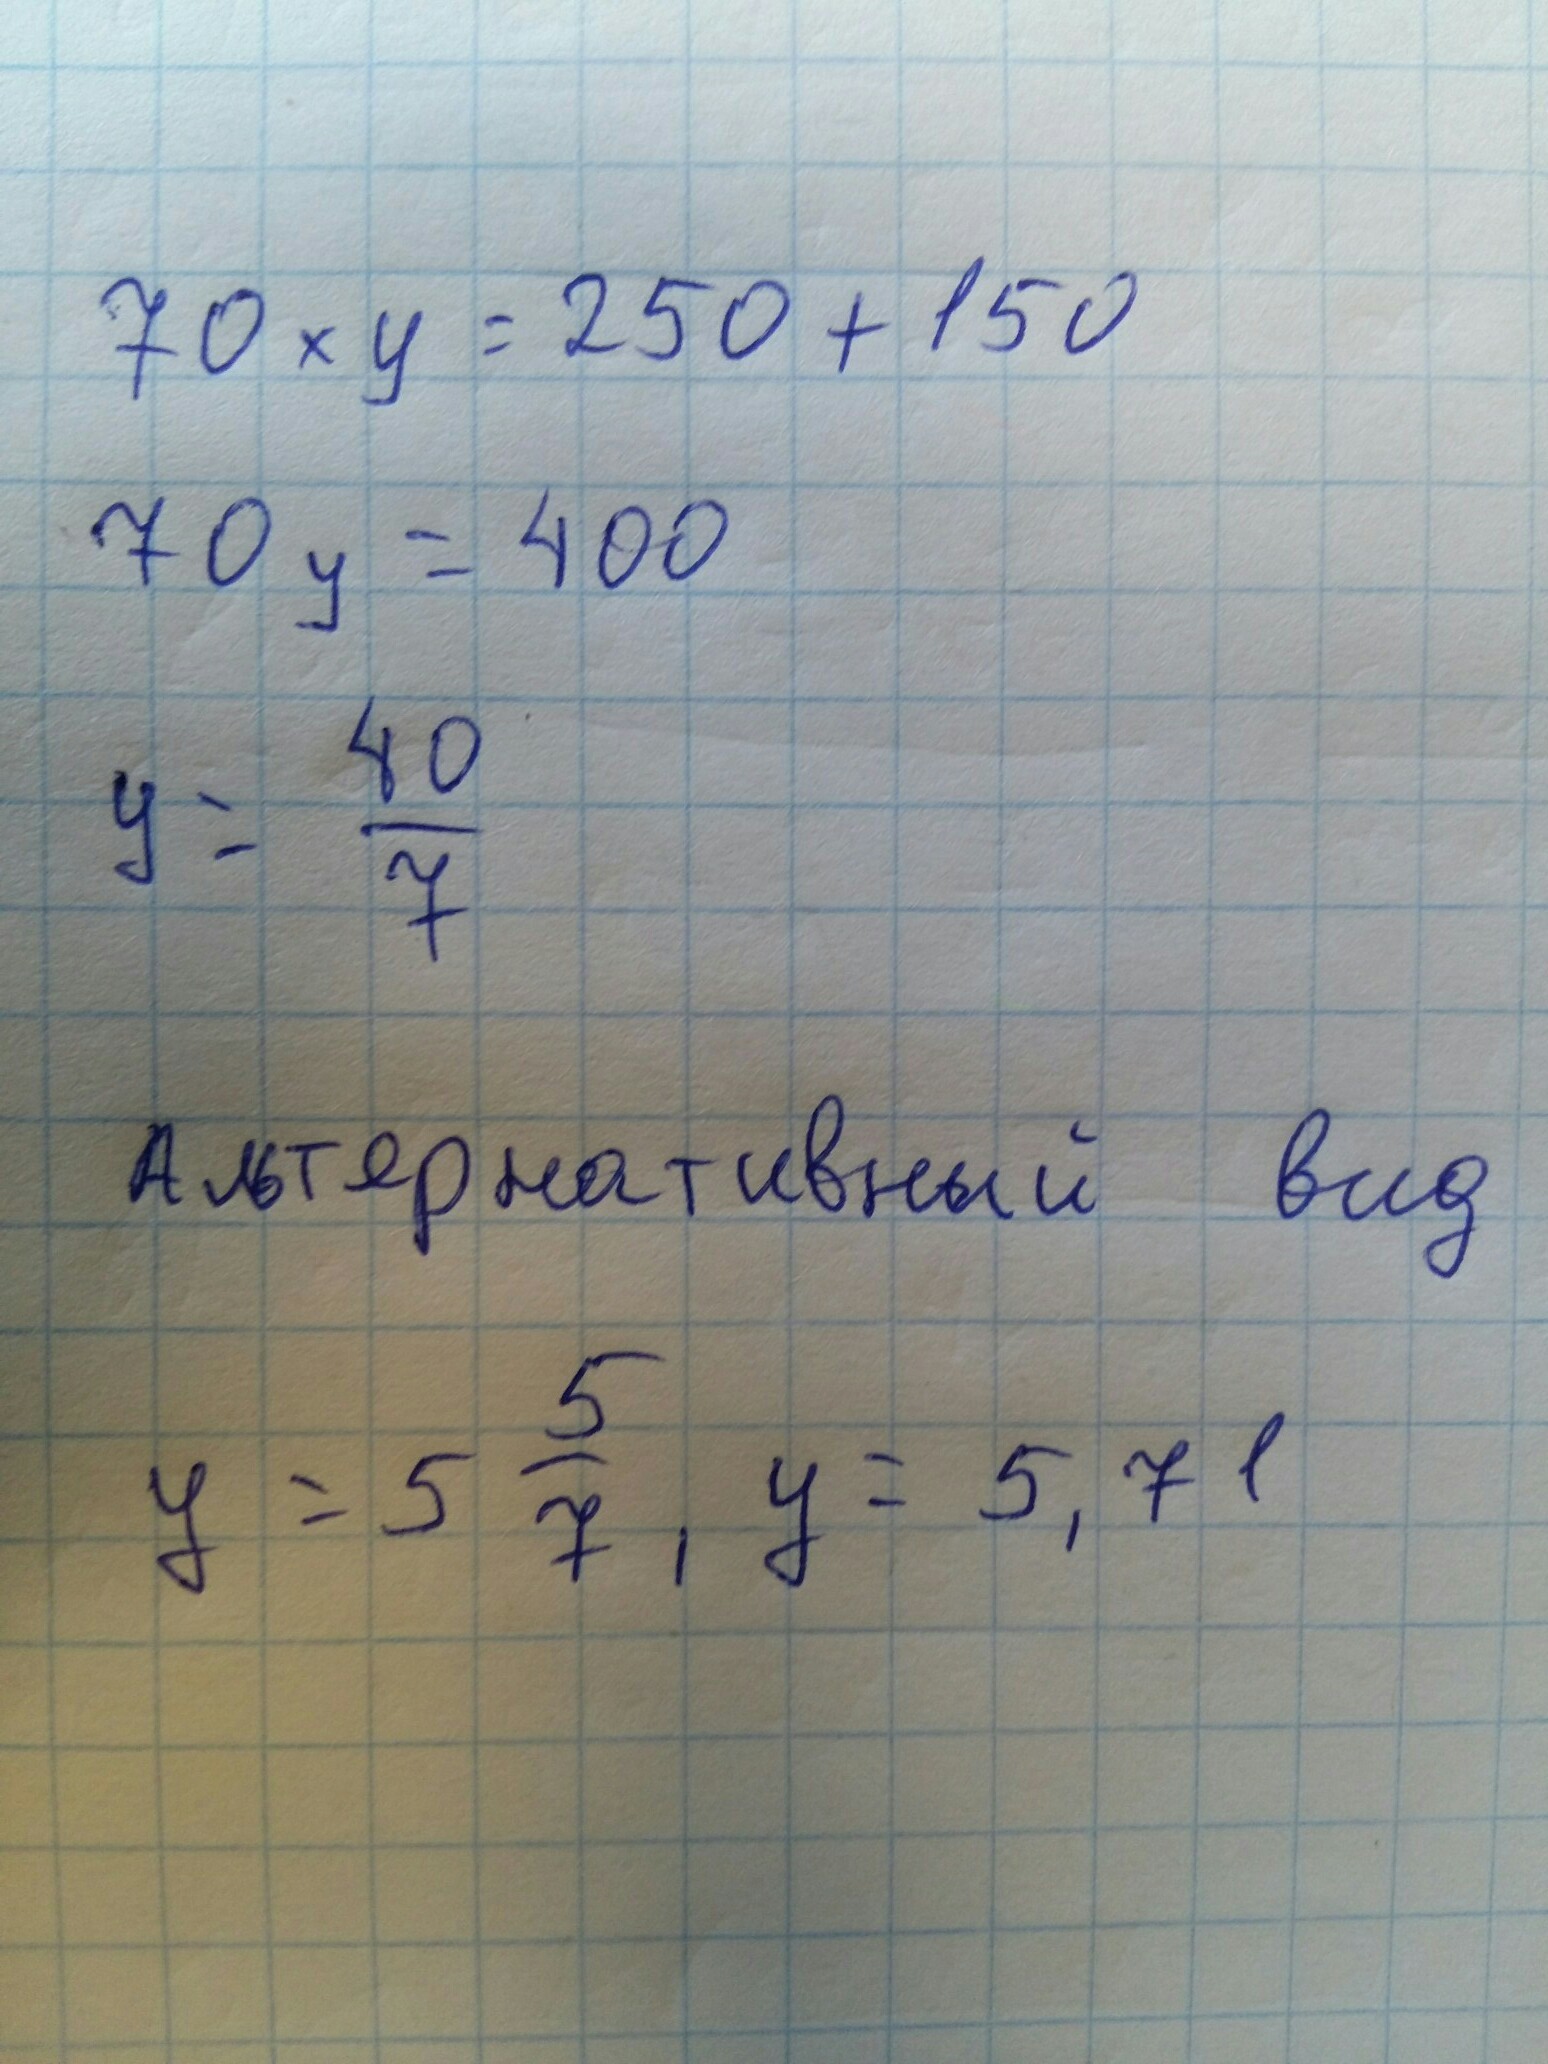 70 × y = 250 + 150
70 y = 400
y = 40/7
Альтернативный вид
y = 5 5/7, y = 5,71